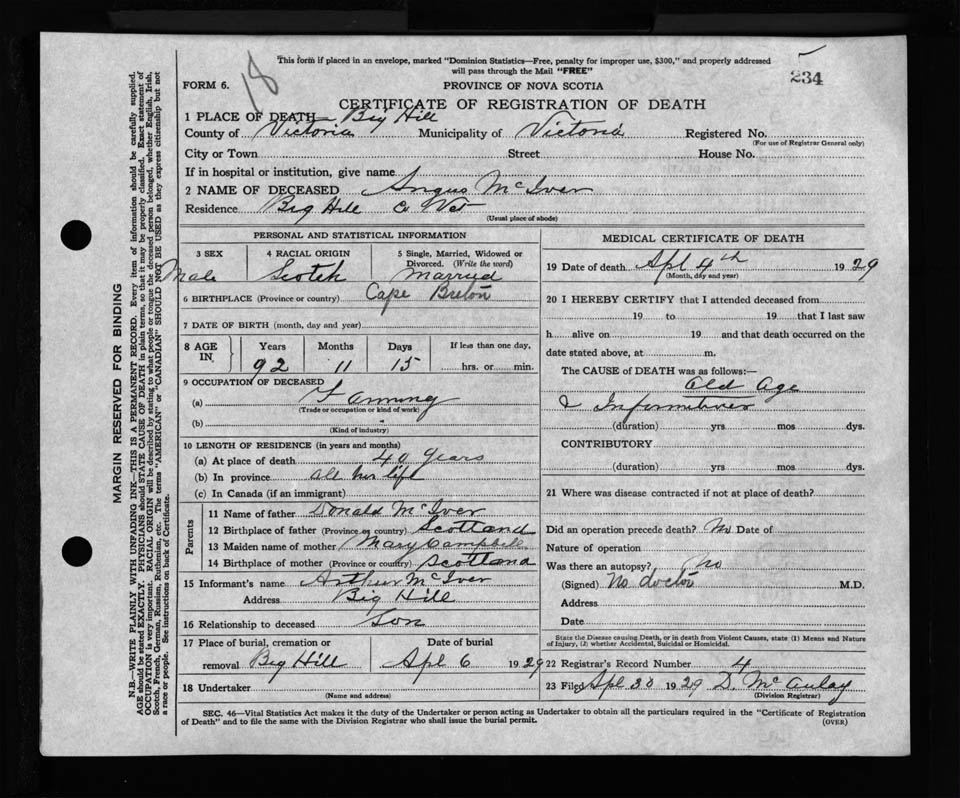 18
This form if placed in an envelope, marked "Dominion Statistics—Free, penalty for improper use, $300," and properly addressed
will pass through the Mail "FREE"
234
FORM 6.
PROVINCE OF NOVA SCOTIA
CERTIFICATE OF REGISTRATION OF DEATH
1 PLACE OF DEATH— Big Hill
County of Victoria Municipality of Victoria Registered No.
(For use of Registrar General only)
City or Town Street House No.
If in hospital or institution, give name
2 NAME OF DECEASED Angus McIver
Residence Big Hill
(Usual place of abode)
PERSONAL AND STATISTICAL INFORMATION
3 SEX
Male
4 RACIAL ORIGIN
Scotch
5 Single, Married, Widowed or
Divorced. (Write the word)
Married
6 BIRTHPLACE (Province or country) Cape Breton
7 DATE OF BIRTH (month, day and year)
8 AGE
IN
Years Months Days If less than one day,
92 11 15 hrs. or min.
9 OCCUPATION OF DECEASED
(a) Farming
(Trade or occupation or kind of work)
(b)
(Kind of industry)
10 LENGTH OF RESIDENCE (in years and months)
(a) At place of death 40 years
(b) In province all his life
(c) In Canada (if an immigrant)
Parents
11 Name of father Donald McIver
12 Birthplace of father (Province or country) Scotland
13 Maiden name of mother Mary Campbell
14 Birthplace of mother (Province or country) Scotland
15 Informant's name Arthur McIver
Address Big Hill
16 Relationship to deceased Son
17 Place of burial, cremation or Date of burial
removal Big Hill Apl 6 1929
18 Undertaker
(Name and address)
MEDICAL CERTIFICATE OF DEATH
19 Date of death Apl 4th 1929
(Month, day and year)
20 I HEREBY CERTIFY that I attended deceased from
19 to 19 that I last saw
h alive on 19 and that death occurred on the
date stated above, at m.
The CAUSE of DEATH was as follows:—
Old Age
&
(duration) yrs mos dys.
CONTRIBUTORY
(duration) yrs mos dys.
21 Where was disease contracted if not at place of death?
Did an operation precede death? No Date of
Nature of operation
Was there an autopsy? No
(Signed) No doctor M.D.
Address
Date
State the Disease causing Death, or in death from Violent Causes, state (1) Means and Nature
of Injury, (2) whether Accidental, Suicidal or Homicidal.
22 Registrar's Record Number 4
23 Filed Apl 30 1929 D. McAulay
(Division Registrar)
SEC. 46—Vital Statistics Act makes it the duty of the Undertaker or person acting as Undertaker to obtain all the particulars required in the "Certificate of Registration
of Death" and to file the same with the Division Registrar who shall issue the burial permit.
(OVER)
MARGIN RESERVED FOR BINDING
N.B.—WRITE PLAINLY WITH UNFADING INK—THIS IS A PERMANENT RECORD. Every item of information should be carefully supplied.
AGE should be stated EXACTLY. PHYSICIANS should STATE CAUSE OF DEATH in plain terms, so that it may be properly classified. Exact statement of
OCCUPATION is very important. RACIAL ORIGIN will be described by stating to what people or tongue the deceased person belonged, whether English, Irish,
Scotch, French, German, Russian, Ruthenian, etc. The terms "AMERICAN" or "CANADIAN" SHOULD NOT BE USED as they express citizenship but not
a race or people. See instructions on back of Certificate.